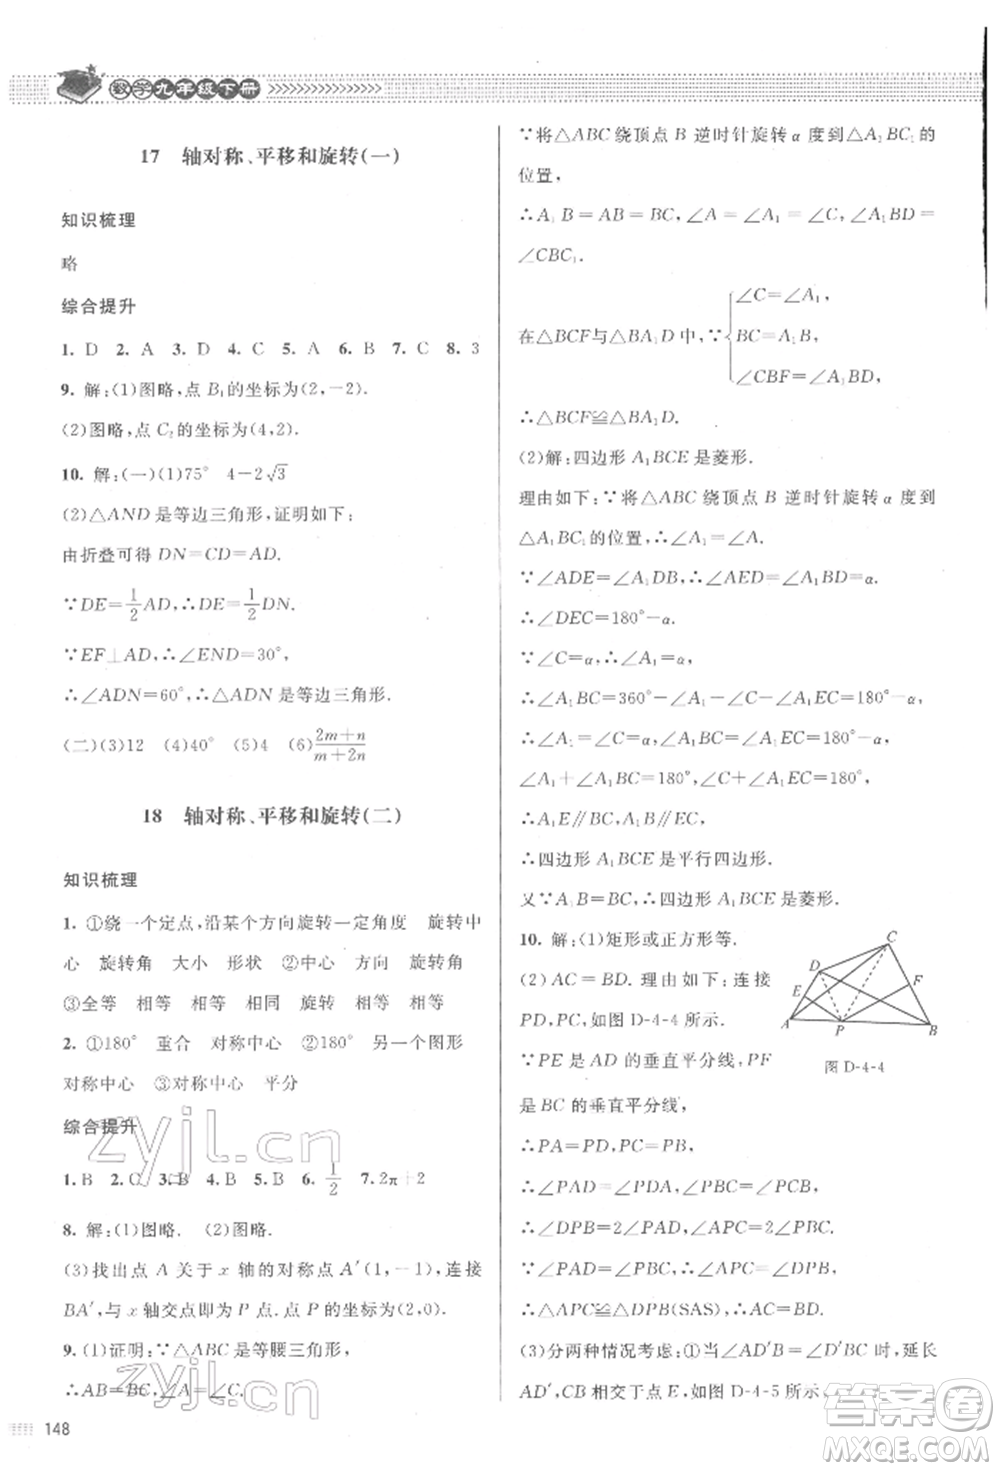 数学九年级下册
17 轴对称、平移和旋转(一)
知识梳理
略
综合提升
1. D 2. A 3. D 4. C 5. A 6. B 7. C 8. 3
9. 解:(1)图略,点 B₁的坐标为(2,-2).
(2)图略,点 C₂的坐标为(4,2).
10. 解:(一)(1)75° 4-2√3
(2)△AND是等边三角形,证明如下:
由折叠可得 DN=CD=AD.
∵DE=1/2AD,∴DE=1/2DN.
∵EF⊥AD,∴∠END=30°,
∴∠ADN=60°,∴△ADN是等边三角形.
(二)(3)12 (4)40° (5)4 (6)(2m+n)/(m+2n)
18 轴对称、平移和旋转(二)
知识梳理
1. ①绕一个定点,沿某个方向旋转一定角度 旋转中
心 旋转角 大小 形状 ②中心 方向 旋转角
③全等 相等 相等 相同 旋转 相等 相等
2. ①180° 重合 对称中心 ②180° 另一个图形
对称中心 ③对称中心 平分
综合提升
1. B 2. C 3. B 4. B 5. B 6. 1/2 7. 2π+2
8. 解:(1)图略. (2)图略.
(3)找出点 A 关于 x 轴的对称点 A′(1,-1),连接
BA′,与 x 轴交点即为 P 点. 点 P 的坐标为(2,0).
9. (1)证明:∵△ABC是等腰三角形,
∴AB=BC,∠A=∠C.
148
∵将△ABC 绕顶点 B 逆时针旋转 α 度到△A₁BC₁的
位置,
∴A₁B=AB=BC,∠A=∠A₁=∠C,∠A₁BD=
∠CBC₁.
在△BCF与△BA₁D中,∵
∠C=∠A₁,
BC=A₁B,
∠CBF=∠A₁BD,
∴△BCF≌△BA₁D.
(2)解:四边形 A₁BCE 是菱形.
理由如下:∵将△ABC 绕顶点 B 逆时针旋转 α 度到
△A₁BC₁的位置,∴∠A₁=∠A.
∵∠ADE=∠A₁DB,∴∠AED=∠A₁BD=α,
∴∠DEC=180°-α.
∵∠C=α,∴∠A₁=α.
∴∠A₁BC=360°-∠A₁-∠C-∠A₁EC=180°-α.
∴∠A₁=∠C,∠A₁BC=∠A₁EC=180°-α,
∠A₁+∠A₁BC=180°,∠C+∠A₁BC=180°,
∴A₁E∥BC,A₁B∥EC,
∴四边形 A₁BCE是平行四边形.
又∵A₁B=BC,∴四边形 A₁BCE是菱形.
10. 解:(1)矩形或正方形等.
(2)AC=BD. 理由如下:连接
PD,PC,如图 D-4-4 所示.
∵PE 是 AD 的垂直平分线,PF
是 BC的垂直平分线,
∴PA=PD,PC=PB,
∴∠PAD=∠PDA,∠PBC=∠PCB,
∴∠DPB=2∠PAD,∠APC=2∠PBC.
∵∠PAD=∠PBC,∴∠APC=∠DPB,
∴△APC≌△DPB(SAS),∴AC=BD.
(3)分两种情况考虑:①当∠AD′B=∠D′BC时,延长
AD′,CB相交于点 E,如图 D-4-5所示,
C
D
F
E
A
P
B
图 D-4-4
zyjl.cn
zyjl.cn
答案圈
MXQE.COM